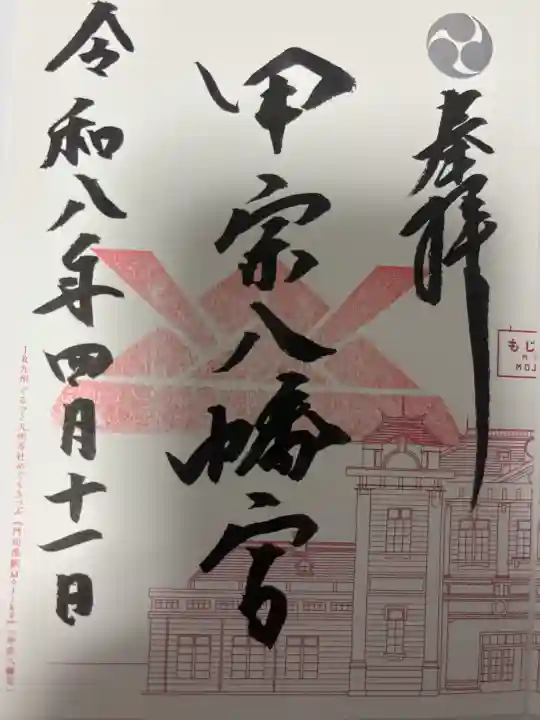 奉拝
甲宗八幡宮
令和八年四月十一日
もじ
MOJ